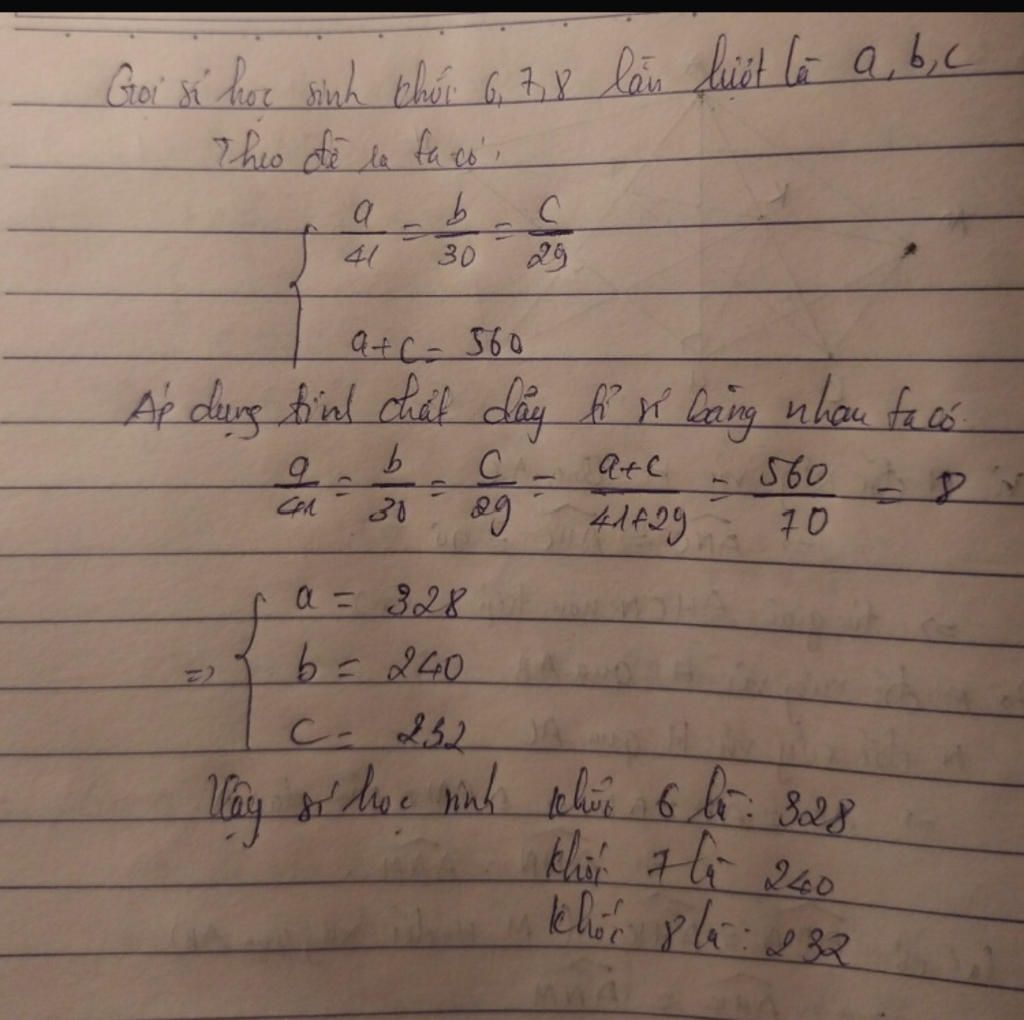 Gọi số học sinh khối 6, 7, 8 lần lượt là a, b, c
Theo đề ra ta có:
a/41 = b/30 = c/29
a+c = 560
Áp dụng tính chất dãy tỉ số bằng nhau ta có
a/41 = b/30 = c/29 = a+c/41+29 = 560/70 = 8
=> a = 328
b = 240
c = 232
Vậy số học sinh khối 6 là: 328
khối 7 là 240
khối 8 là: 232